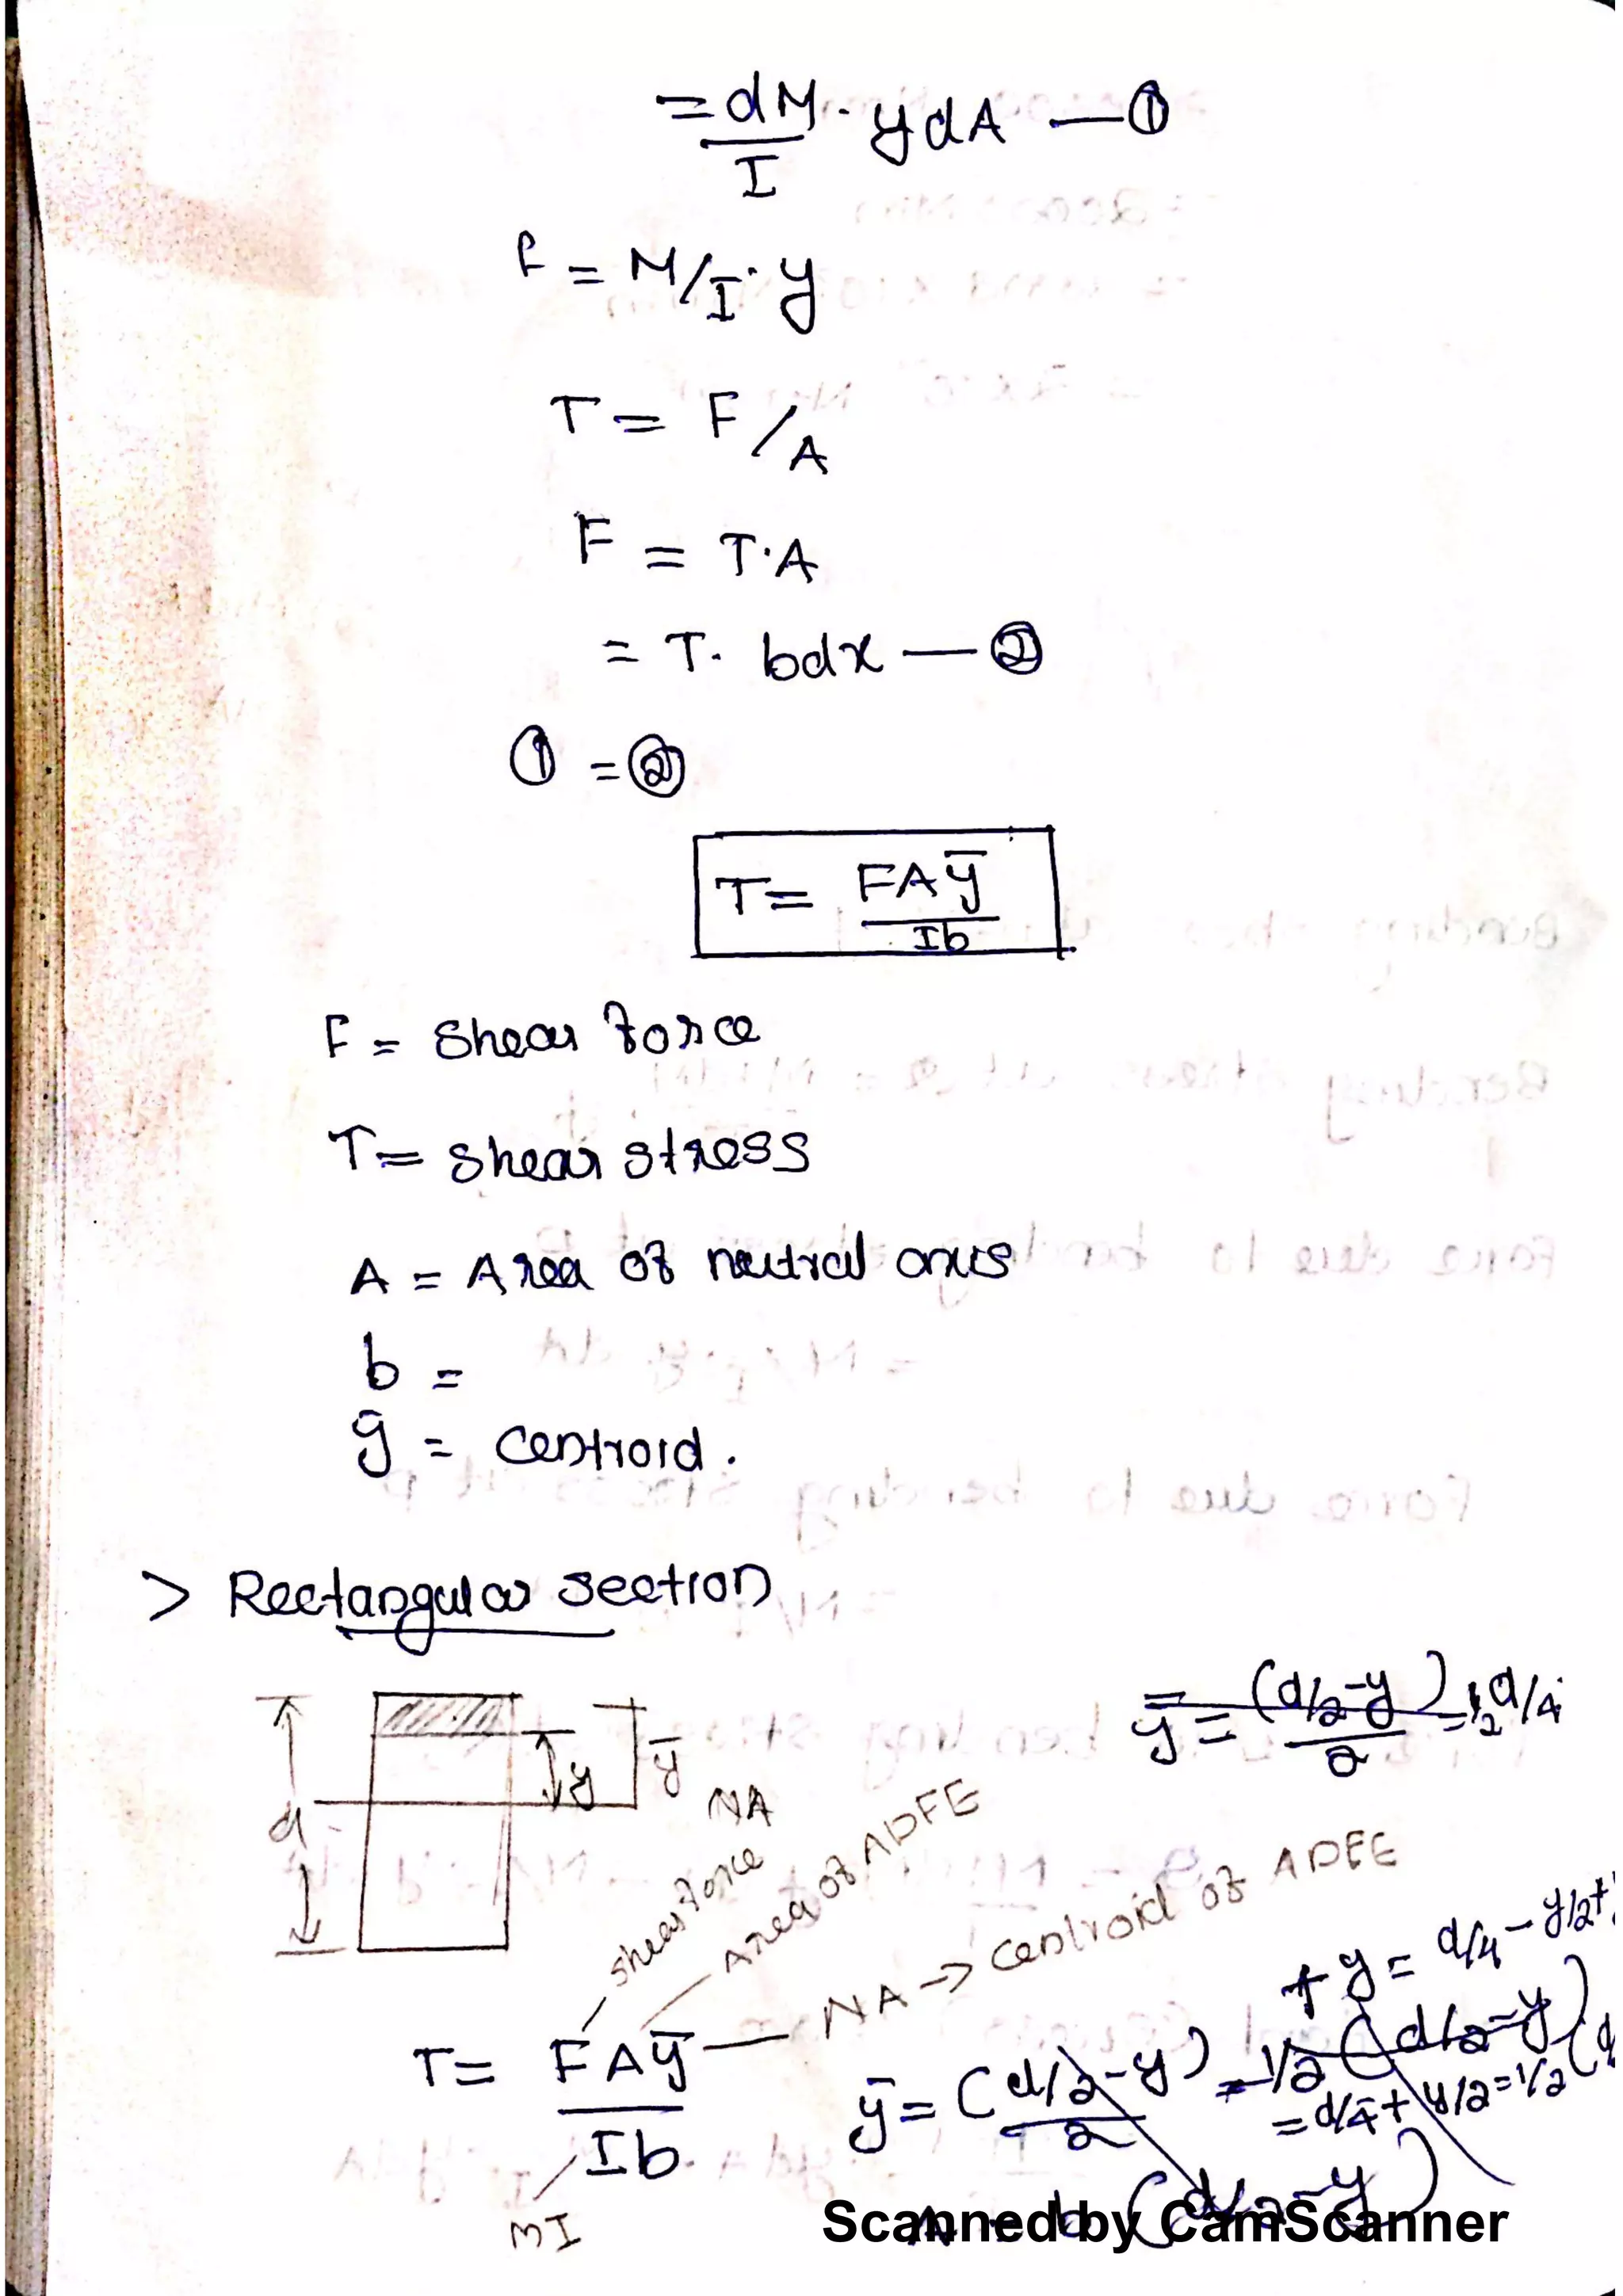 = dM/I · ydA — ①
F = M/I · y
T = F/A
F = T·A
= T. bdx — ②
① = ②
T = FAȳ/Ib
F = Shear force
T = shear stress
A = Area of neutral axis
b =
ȳ = centroid.
> Rectangular section
ȳ = (d/2-y)/2 = d/4
d
y
ȳ
NA
shear force
Area of ADFE
NA → centroid of ADFE
+ y = d/4 - y/2 +
T = FAȳ/Ib
ȳ = (d/2-y)/2 = 1/2 (d/2-y)
= d/4 + y/2 = 1/2 (d
MI
A = b (d/2-y)
Scanned by CamScanner